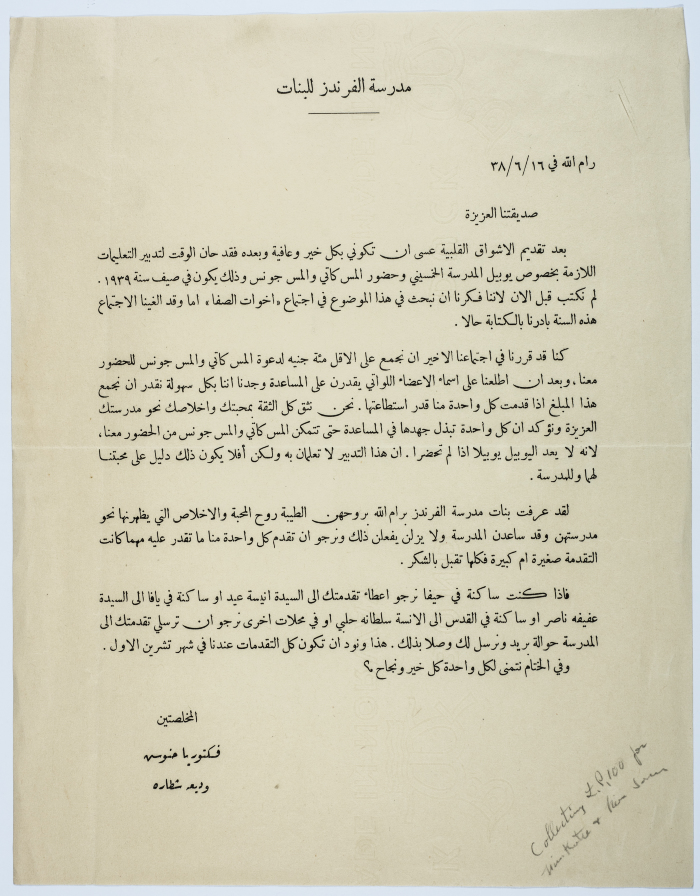 مدرسة الفرندز للبنات
رام الله في ٣٨/٦/١٦
صديقتنا العزيزة
بعد تقديم الاشواق القلبية عسى ان تكوني بكل خير وعافية وبعده فقد حان الوقت لتدبير التعليمات
اللازمة بخصوص يوبيل المدرسة الخمسيني وحضور المس كاتي والمس جونس وذلك يكون في صيف سنة ١٩٣٩ .
لم نكتب قبل الان لاننا فكرنا ان نبحث في هذا الموضوع في اجتماع «اخوات الصفا» اما وقد الغينا الاجتماع
هذه السنة بادرنا بالكتابة حالا .
كنا قد قررنا في اجتماعنا الاخير ان نجمع على الاقل مئة جنيه لدعوة المس كاتي والمس جونس للحضور
معنا، وبعد ان اطلعنا على اسماء الاعضاء اللواتي يقدرن على المساعدة وجدنا اننا بكل سهولة نقدر ان نجمع
هذا المبلغ اذا قدمت كل واحدة منا قدر استطاعتها . نحن نثق كل الثقة بمحبتك واخلاصك نحو مدرستك
العزيزة ونؤكد ان كل واحدة تبذل جهدها في المساعدة حتى تتمكن المس كاتي والمس جونس من الحضور معنا،
لانه لا يعد اليوبيل يوبيلا اذا لم تحضرا . ان هذا التدبير لا تعلمان به ولكن أفلا يكون ذلك دليل على محبتنا
لهما وللمدرسة .
لقد عرفت بنات مدرسة الفرندز برام الله بروحهن الطيبة روح المحبة والاخلاص التي يظهرنها نحو
مدرستهن وقد ساعدن المدرسة ولا يزلن يفعلن ذلك ونرجو ان تقدم كل واحدة منا ما تقدر عليه مهما كانت
التقدمة صغيرة ام كبيرة فكلها تقبل بالشكر .
فاذا كنت ساكنة في حيفا نرجو اعطاء تقدمتك الى السيدة انيسة عيد او ساكنة في يافا الى السيدة
عفيفه ناصر او ساكنة في القدس الى الانسة سلطانه حلبي او في محلات اخرى نرجو ان ترسلي تقدمتك الى
المدرسة حوالة بريد ونرسل لك وصلا بذلك . هذا ونود ان تكون كل التقدمات عندنا في شهر تشرين الاول .
وفي الختام نتمنى لكل واحدة كل خير ونجاح .
المخلصتين
فكتوريا حنوش
وديعه شطاره
Collecting £.P.100 for
Miss Katie &